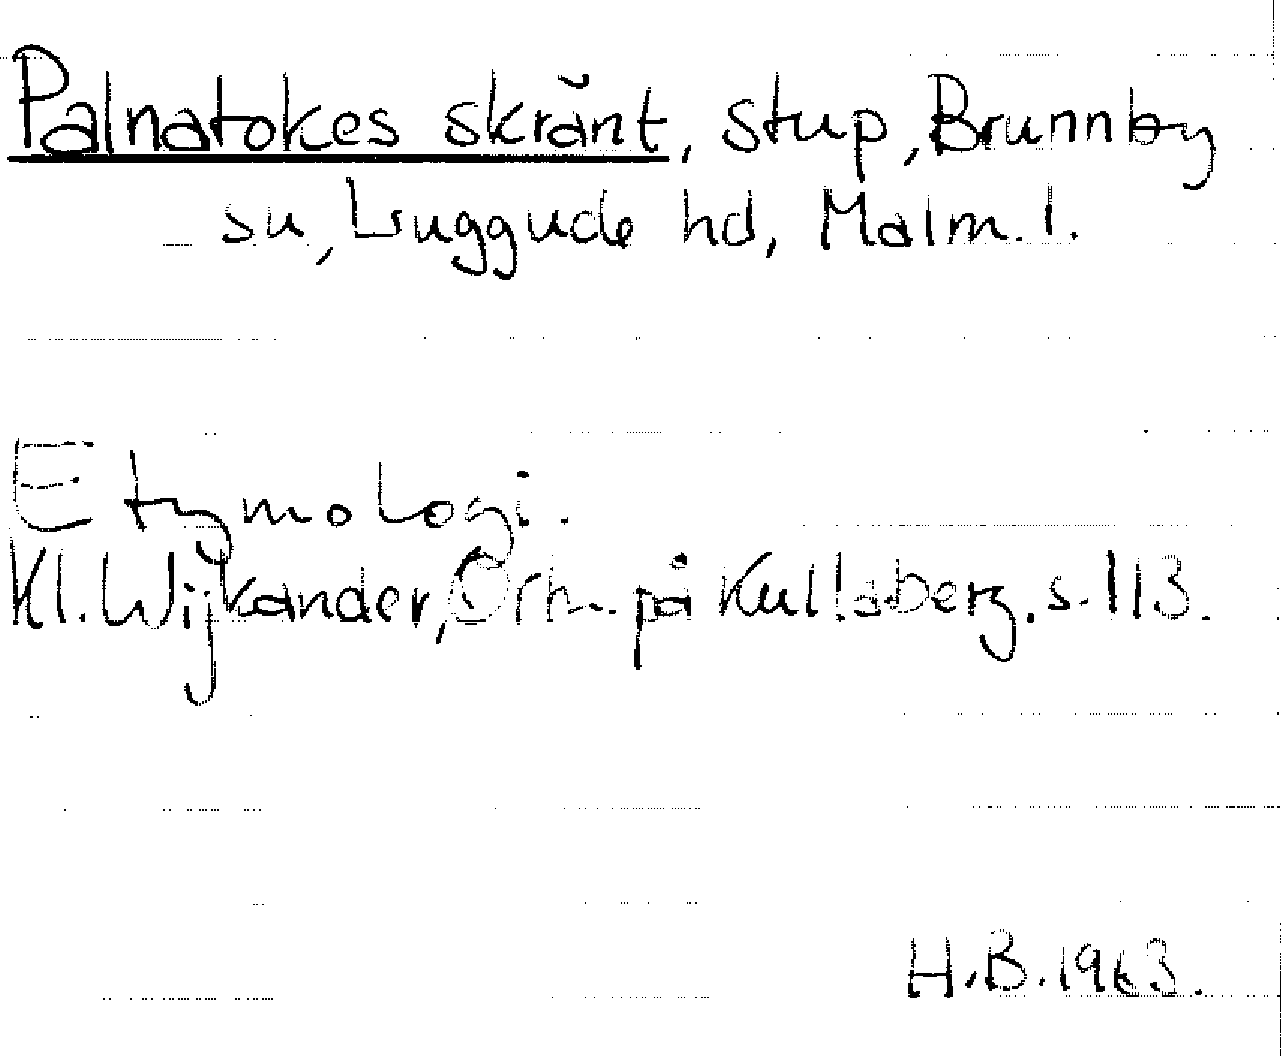 Palnatokes skränt, stup, Brunnby
sn, Luggude hd, Malm. l.
Etymologi.
Kl. Wijkander, Ortn. på Kullaberg. s. 113.
H.B. 1963.